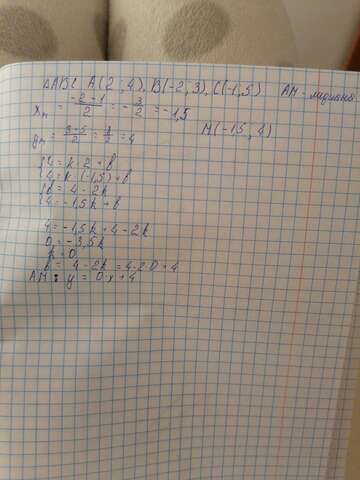 ΔABC A(2;4), B(-2,3), C(-1,5) AM - медиана
xₘ = (-2-1)/2 = -3/2 = -1,5
yₘ = (3+5)/2 = 8/2 = 4 M(-1,5, 4)
{4 = k·2+b
{4 = k·(-1,5)+b
{b = 4-2k
{4 = -1,5k+b
4 = -1,5k+4-2k
0 = -3,5k
k = 0
b = 4-2k = 4-2·0 = 4
AM: y = 0x+4